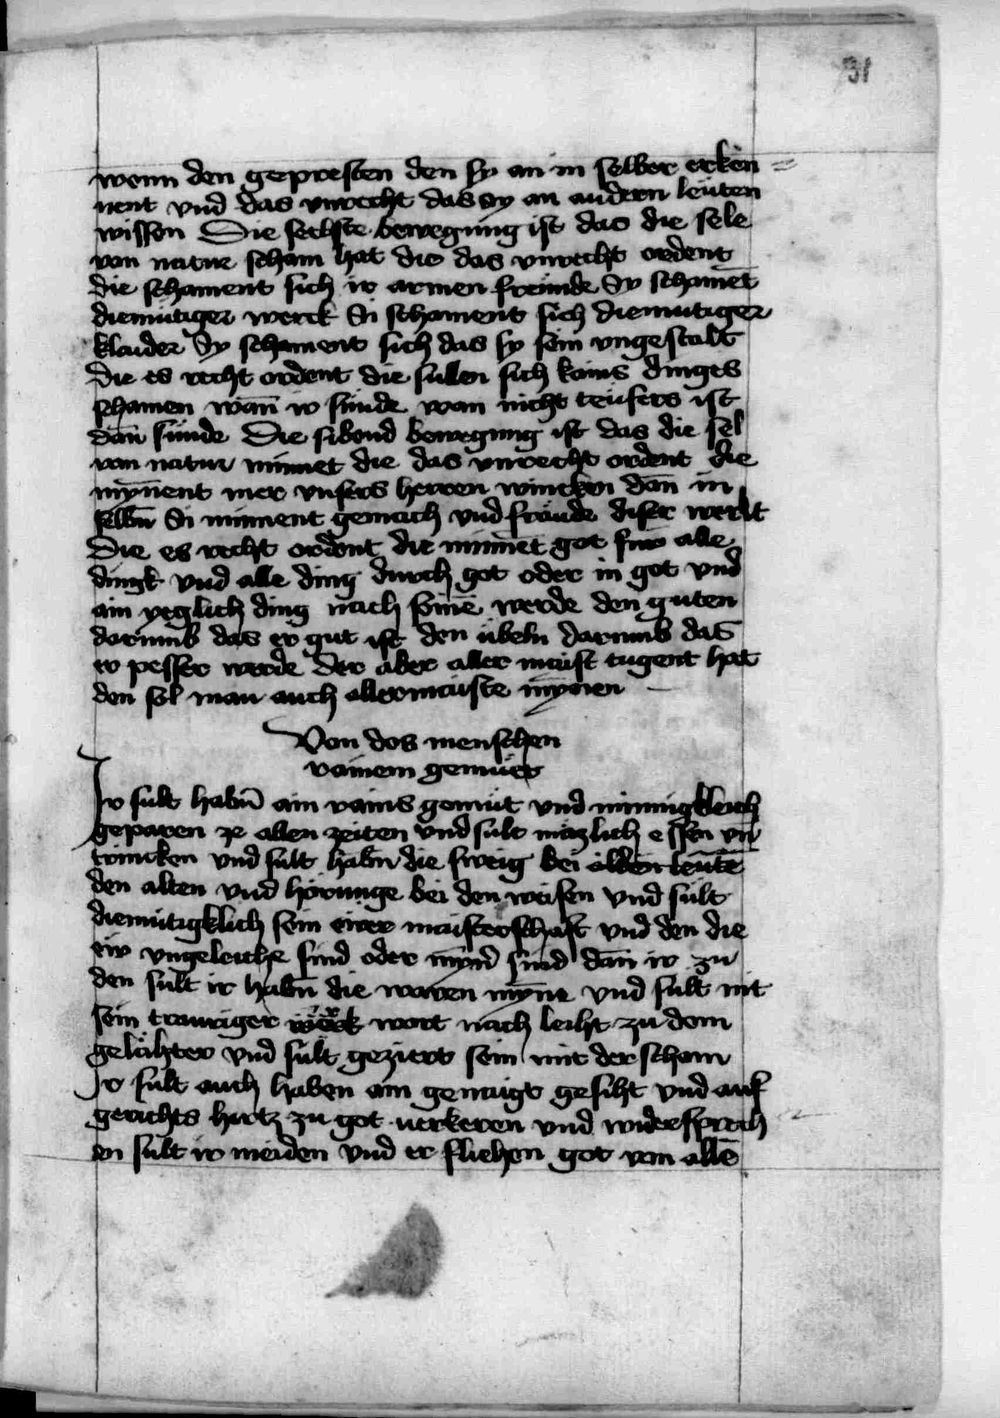 31
wenn den gepresten den sy an in selber erken
nent vnd das vnrecht das sy an andern leuten
wissen Die sechste bewegung ist das die sele
von natur scham hat die das vnrecht ordent
die schament sich ir armen freunde Sy schament
diemutiger werck Si schament sich diemutiger
klaider Sy schament sich das sy sein vngestalt
Die es recht ordent die sullen sich kains dinges
schamen wan̄ ir sunde wan nicht teufers ist
dan̄ sunde Die sibend bewegung ist das die sel
von natur minnet die das vnrecht ordent die
myn̄ent mer vnsers herren wincken dan̄ in
selbn̄ Si minnent gemach vnd fräude diser werlt
Die es recht ordent die minnēt got fur alle
dingk vnd alle ding durch got oder in got vnd
ain yeglich ding nach seinē werde den guten
darumb das er gut ist den übeln darumb das
er pesser werde Der aber aller maist tugent hat
den sol man auch allermaiste myn̄en
Von des menschen
rainem gemüet
Ir sult habn̄ ain rains gemüt vnd minnigkleich
geparen ze allen zeiten vnd sült mäzlich essen vn̄
trincken vnd sult habn̄ die sweig bei
den alten vnd hörunge bei den weisen vnd sült
diemütigklich sein ewer maisterschaft vnd den die
ew vngeleiche sind oder myn̄ sind dan̄ ir zu
den sült ir habn̄ die waren myn̄e vnd sült nit
sein trauriger wort nach leiht zu dem
gelähter vnd sült geziert sein mit der scham
Ir sült auch haben ain genaigt gesiht vnd auf
gerichts hertz zu got verkeren vnd widersprech
en sült ir meiden vnd er fliehen got von allē